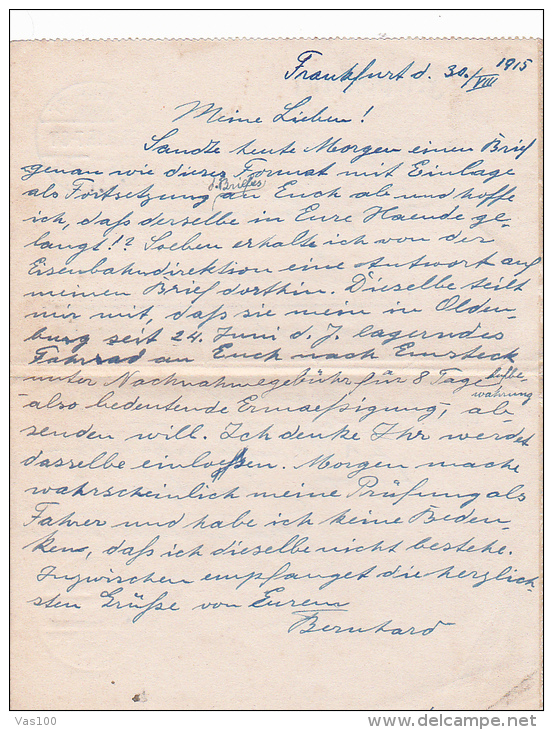 Frankfurt d. 30./VIII 1915
Meine Lieben!
Sandte heute Morgen einen Brief
genau wie dieses Format mit Einlage
als Fortsetzung (d. Briefes) an Euch ab und hoffe
ich, daß derselbe in Eure Haende ge-
langt!? Soeben erhalte ich von der
Eisenbahndirektion eine Antwort auf
meinen Brief dorthin. Dieselbe teilt
mir mit, daß sie mein in Olden-
burg seit 24. Juni d. J. lagerndes
Fahrrad an Euch nach Emsteck
unter Nachnahmegebühr für 8 Tage
wahrung
-also bedeutende Ermaeßigung-, ab-
senden will. Ich denke Ihr werdet
dasselbe einloeßen. Morgen mache
wahrscheinlich meine Prüfung als
Fahrer und habe ich keine Beden-
ken, daß ich dieselbe nicht bestehe.
Inzwischen empfanget die herzlich-
sten Grüße von Eurem
Bernhard
Vas100
www.delcampe.net